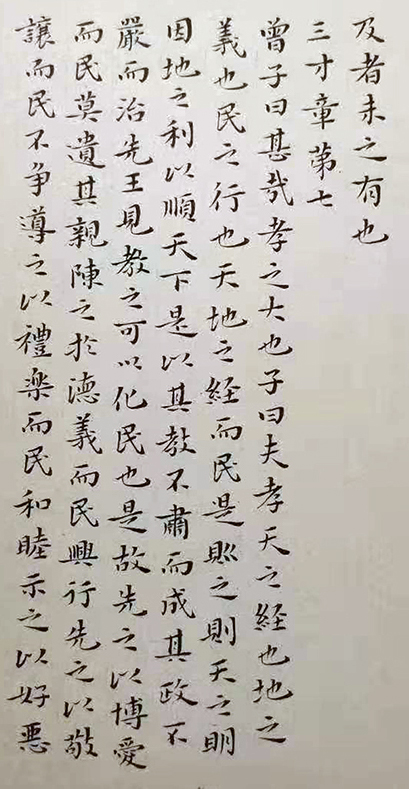 及者未之有也
三才章第七
曾子曰甚哉孝之大也子曰夫孝天之経也地之
義也民之行也天地之経而民是則之則天之明
因地之利以順天下是以其教不肅而成其政不
嚴而治先王見教之可以化民也是故先之以博愛
而民莫遺其親陳之於徳義而民興行先之以敬
讓而民不争導之以禮楽而民和睦示之以好悪